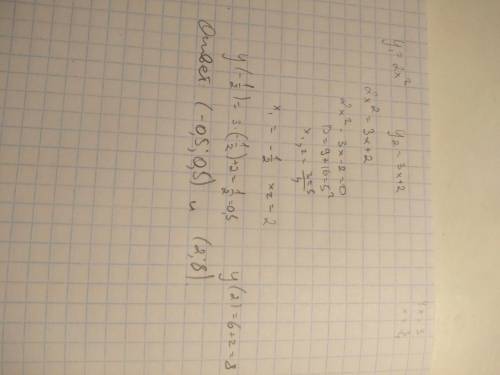 y₁ = 2x² y₂ = 3x+2
2x² = 3x+2
2x² - 3x - 2 = 0
D = 9+16 = 5²
x₁,₂ = (3±5)/4
x₁ = -1/2 x₂ = 2
y(-1/2) = 3·(-1/2)+2 = 1/2 = 0,5 y(2) = 6+2 = 8
Ответ: (-0,5; 0,5) и (2; 8).